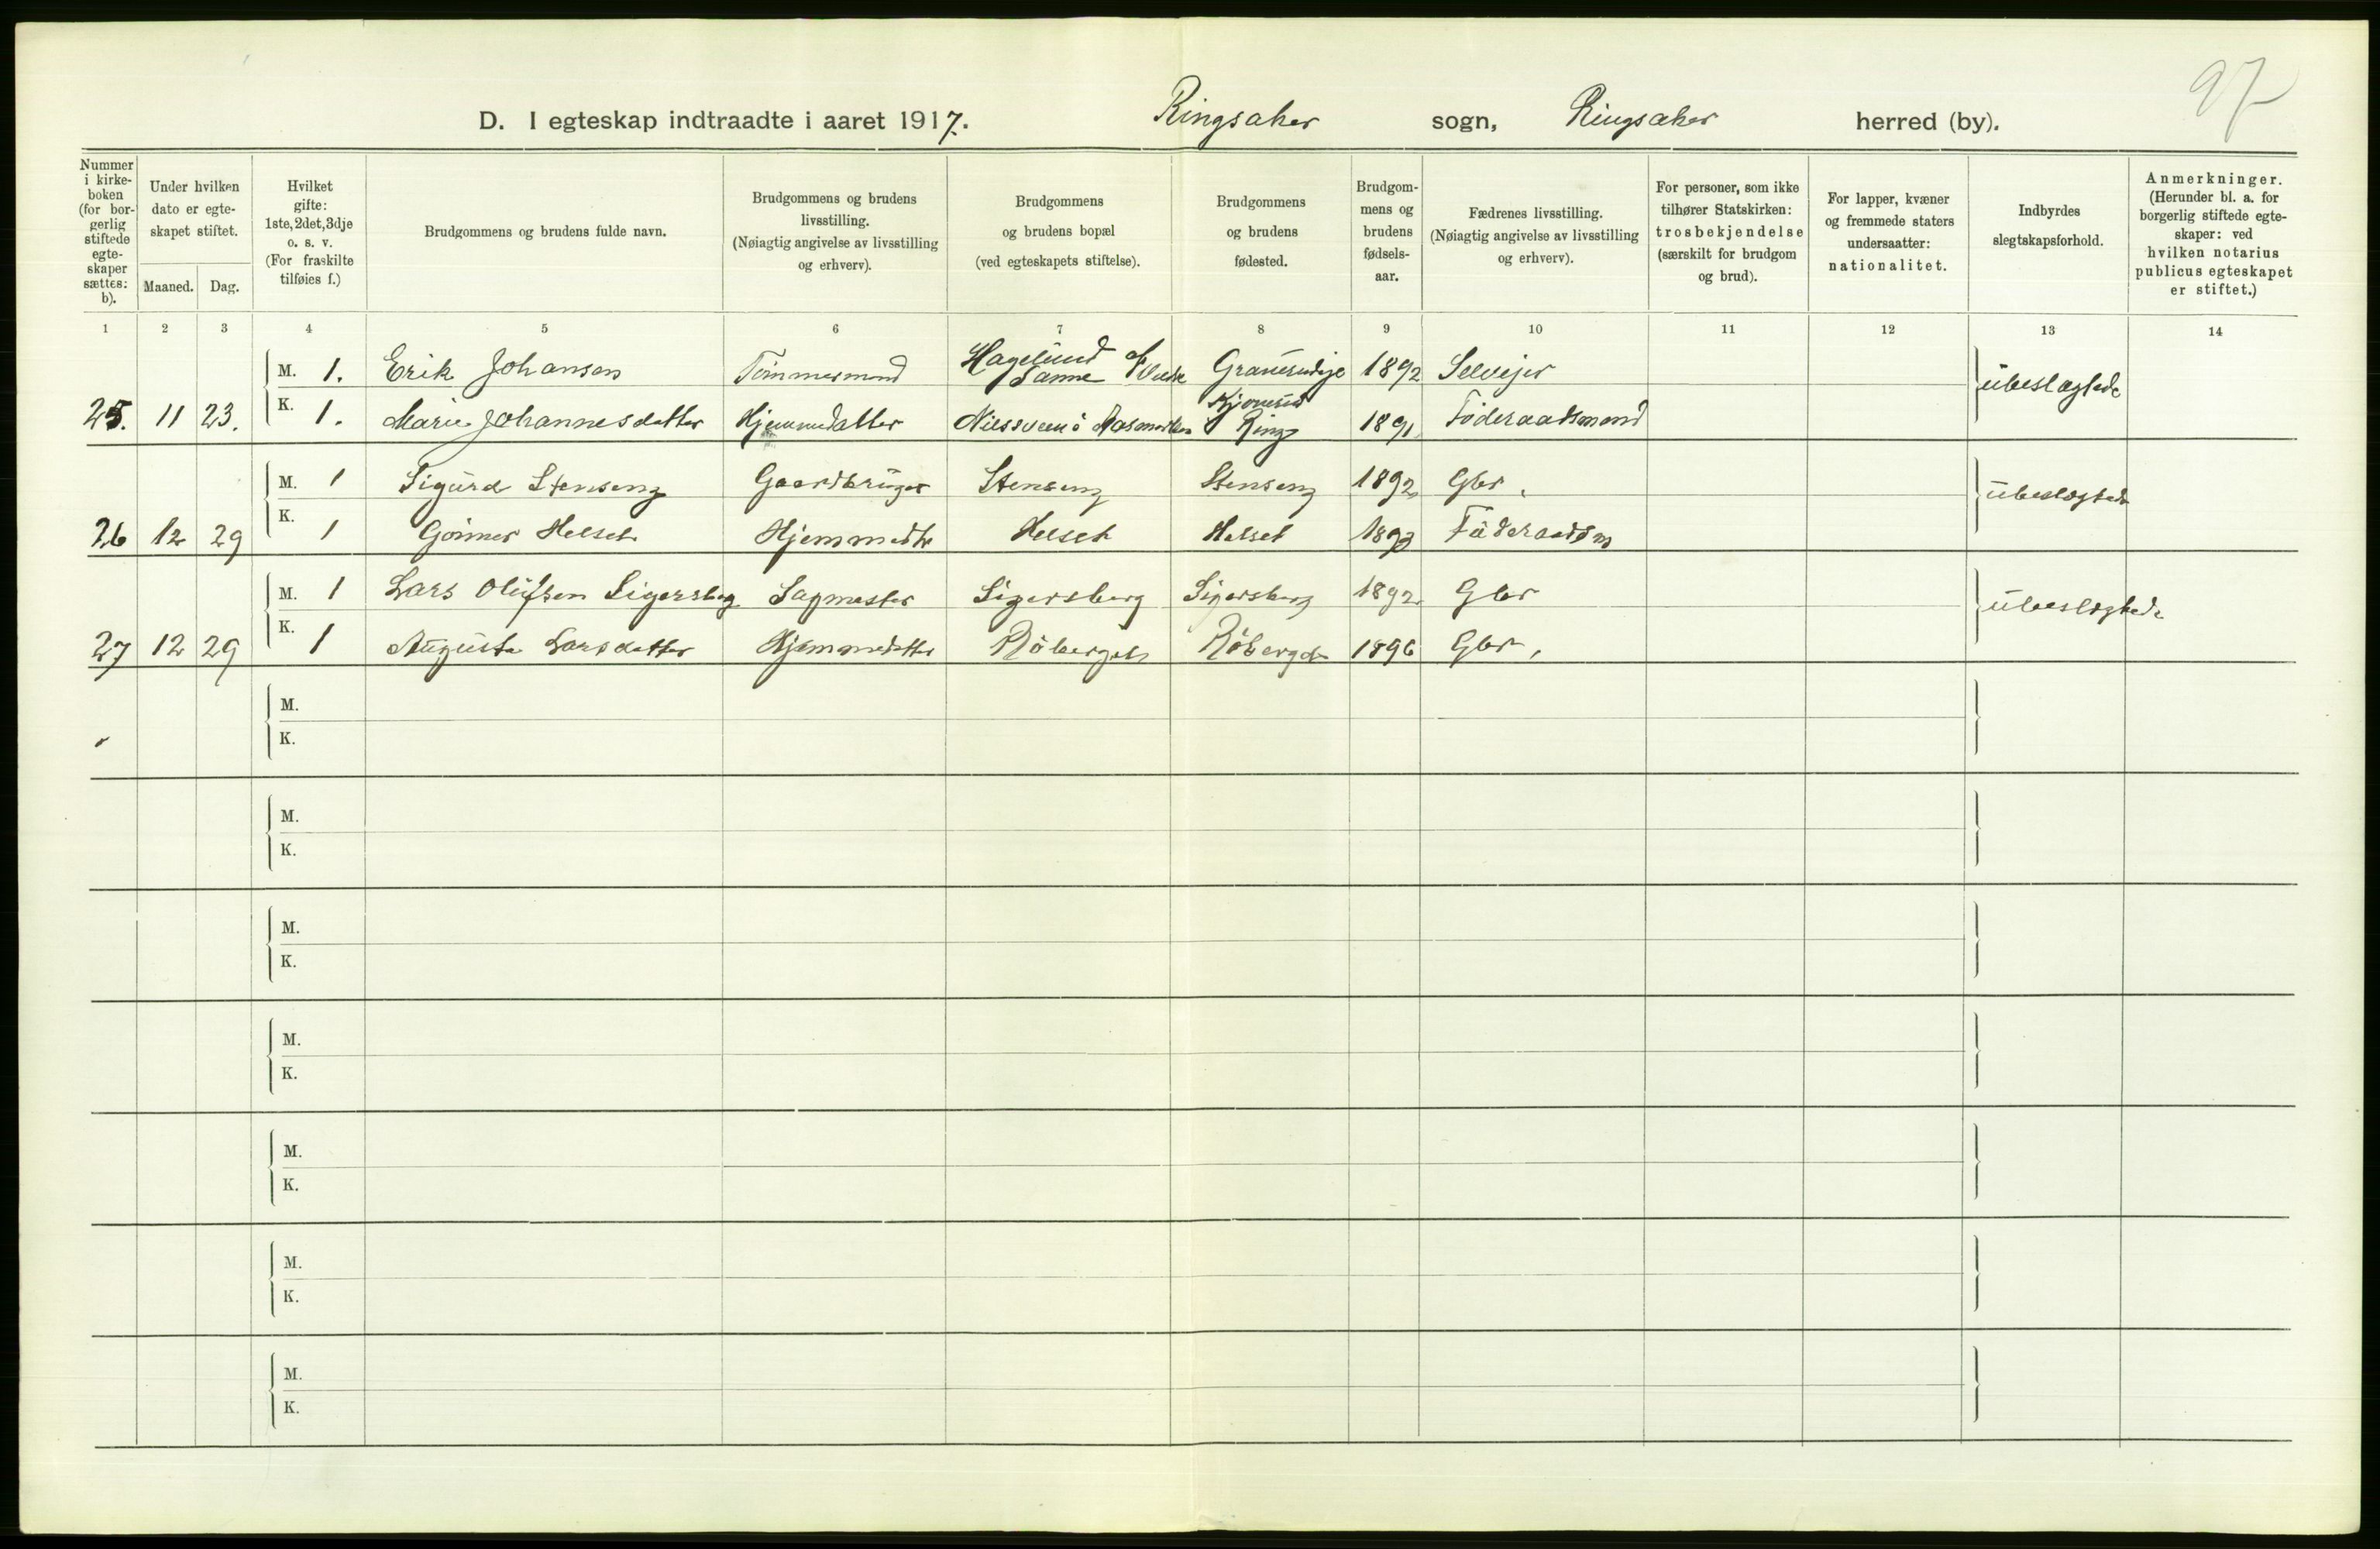 97
D. I egteskap indtraadte i aaret 1917. Ringsaker sogn, Ringsaker herred (by).
Nummer i kirke-boken (for bor-gerlig stiftede egte-skaper sættes: b).
Under hvilken dato er egte-skapet stiftet.
Maaned. Dag.
Hvilket gifte: 1ste, 2det, 3dje o. s. v. (For fraskilte tilføies f.)
Brudgommens og brudens fulde navn.
Brudgommens og brudens livsstilling. (Nøiagtig angivelse av livsstilling og erhverv).
Brudgommens og brudens bopæl (ved egteskapets stiftelse).
Brudgommens og brudens fødested.
Brudgom-mens og brudens fødsels-aar.
Fædrenes livsstilling. (Nøiagtig angivelse av livsstilling og erhverv).
For personer, som ikke tilhører Statskirken: trosbekjendelse (særskilt for brudgom og brud).
For lapper, kvæner og fremmede staters undersaatter: nationalitet.
Indbyrdes slegtskapsforhold.
Anmerkninger. (Herunder bl. a. for borgerlig stiftede egte-skaper: ved hvilken notarius publicus egteskapet er stiftet.)
1 2 3 4 5 6 7 8 9 10 11 12 13 14
M. 1. Erik Johansen Tömmermand Hagelund Sanne 1892 Selvejer ubeslegtede
25. 11 23. K. 1. Marie Johannesdatter Hjemmedatter Ring 1891 Föderaadsmand
M. 1 Sigurd Stenseng Gaardbruger Stenseng Stenseng 1892 Gbr. ubeslegtede
26 12 29 K. 1 Helset Hjemmedtr Helset Helset Föderaadsm
M. 1 Lars Olufsen Sigersberg Sagmester Sigersberg Sigersberg 1892 Gbr ubeslegtede
27 12 29 K. 1 Augusta Larsdatter Hjemmedatter 1896 Gbr.
M.
K.
M.
K.
M.
K.
M.
K.
M.
K.
M.
K.
M.
K.